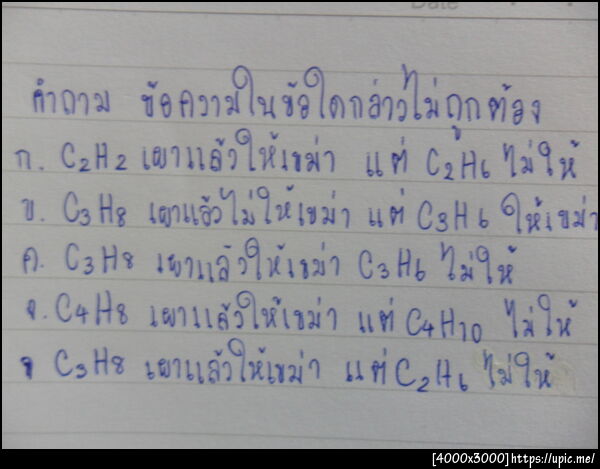 Date
คำถาม ข้อความในข้อใดกล่าวไม่ถูกต้อง
ก. C2H2 เผาแล้วให้เขม่า แต่ C2H6 ไม่ให้
ข. C3H8 เผาแล้วไม่ให้เขม่า แต่ C3H6 ให้เขม่า
ค. C3H8 เผาแล้วให้เขม่า C3H6 ไม่ให้
ง. C4H8 เผาแล้วให้เขม่า แต่ C4H10 ไม่ให้
จ C3H8 เผาแล้วให้เขม่า แต่ C2H6 ไม่ให้
[4000x3000]https://upic.me/